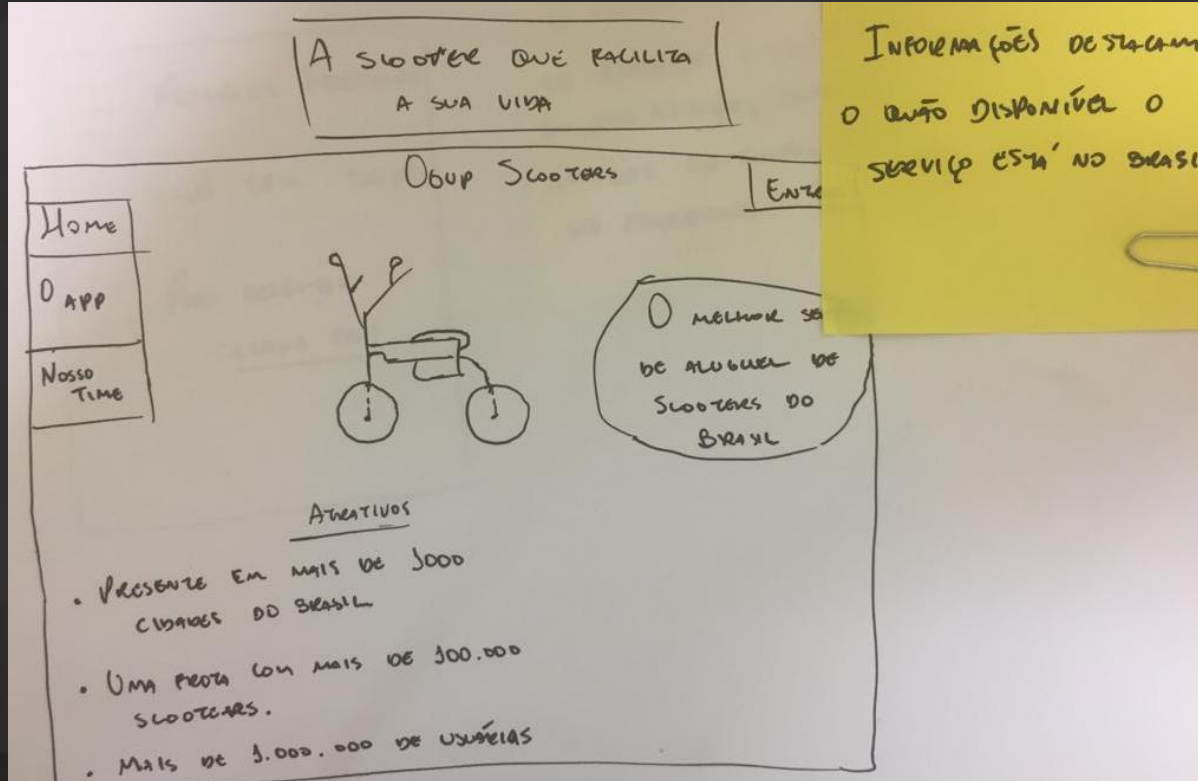 A SCOOTER QUE FACILITA
A SUA VIDA
INFORMAÇÕES DESTACAM
O QUÃO DISPONÍVEL O
SERVIÇO ESTÁ NO BRASIL
OGUP SCOOTERS
ENTR
HOME
O APP
NOSSO
TIME
O MELHOR SE
DE ALUGUEL DE
SCOOTERS DO
BRASIL
ATRATIVOS
• PRESENTE EM MAIS DE 1000
CIDADES DO BRASIL
• UMA FROTA COM MAIS DE 100.000
SCOOTEARS.
• MAIS DE 1.000.000 DE USUÁRIAS